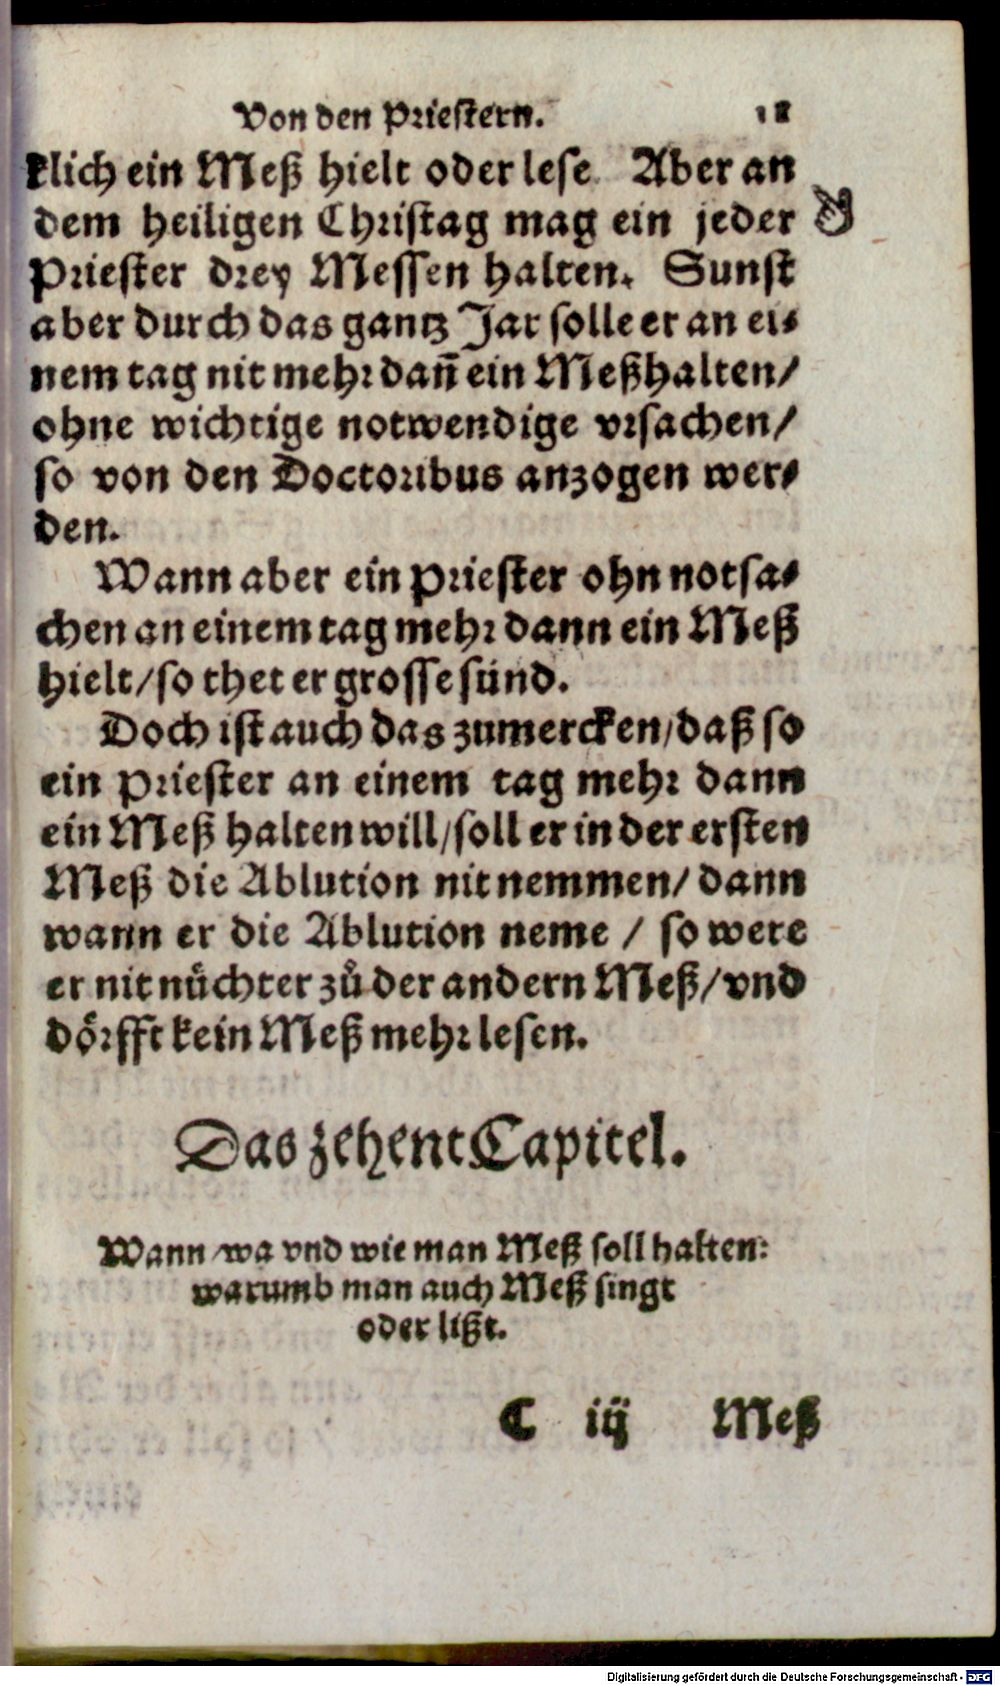 Von den Priestern. 18
klich ein Meß hielt oder lese. Aber an
dem heiligen Christag mag ein jeder
Priester drey Messen halten. Sunst
aber durch das gantz Jar solle er an ei⸗
nem tag nit mehr dañ ein Meßhalten/
ohne wichtige notwendige vrsachen/
so von den Doctoribus anzogen wer⸗
den.
Wann aber ein Priester ohn notsa⸗
chen an einem tag mehr dann ein Meß
hielt/so thet er grosse sünd.
Doch ist auch das zumercken/daß so
ein Priester an einem tag mehr dann
ein Meß halten will/soll er in der ersten
Meß die Ablution nit nemmen/ dann
wann er die Ablution neme / so were
er nit nüchter zů der andern Meß/vnd
dörfft kein Meß mehr lesen.
Das zehent Capitel.
Wann/wa vnd wie man Meß soll halten:
warumb man auch Meß singt
oder lißt.
C iij Meß
Digitalisierung gefördert durch die Deutsche Forschungsgemeinschaft - DFG